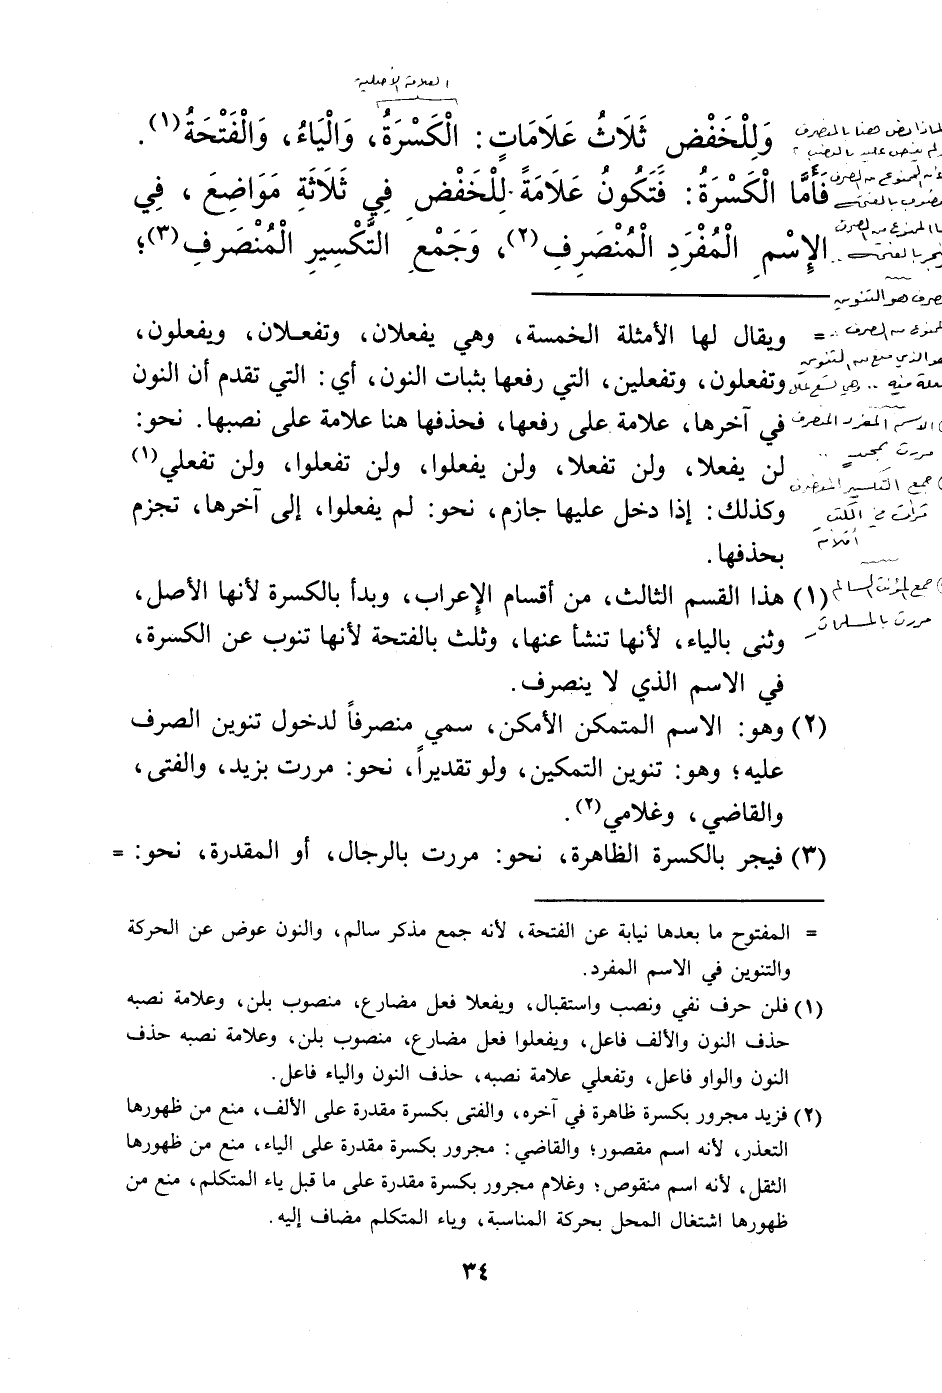 العلامة الأصلية
وَلِلْخَفْضِ ثَلَاثُ عَلَامَاتٍ: الْكَسْرَةُ، وَالْيَاءُ، وَالْفَتْحَةُ(١).
فَأَمَّا الْكَسْرَةُ: فَتَكُونُ عَلَامَةً لِلْخَفْضِ فِي ثَلَاثَةِ مَوَاضِعَ، فِي
الإِسْمِ الْمُفْرَدِ الْمُنْصَرِفِ(٢)، وَجَمْعِ التَّكْسِيرِ الْمُنْصَرِفِ(٣)؛
= ويقال لها الأمثلة الخمسة، وهي يفعلان، وتفعـلان، ويفعلون،
وتفعلون، وتفعلين، التي رفعها بثبات النون، أي: التي تقدم أن النون
في آخرها، علامة على رفعها، فحذفها هنا علامة على نصبها. نحو:
لن يفعلا، ولن تفعلا، ولن يفعلوا، ولن تفعلوا، ولن تفعلي(١)
وكذلك: إذا دخل عليها جازم، نحو: لم يفعلوا، إلى آخرها، تجزم
بحذفها.
(١) هذا القسم الثالث، من أقسام الإعراب، وبدأ بالكسرة لأنها الأصل،
وثنى بالياء، لأنها تنشأ عنها، وثلث بالفتحة لأنها تنوب عن الكسرة،
في الاسم الذي لا ينصرف.
(٢) وهو: الاسم المتمكن الأمكن، سمي منصرفاً لدخول تنوين الصرف
عليه؛ وهو: تنوين التمكين، ولو تقديراً، نحو: مررت بزيد، والفتى،
والقاضي، وغلامي(٢).
(٣) فيجر بالكسرة الظاهرة، نحو: مررت بالرجال، أو المقدرة، نحو: =
= المفتوح ما بعدها نيابة عن الفتحة، لأنه جمع مذكر سالم، والنون عوض عن الحركة
والتنوين في الاسم المفرد.
(١) فلن حرف نفي ونصب واستقبال، ويفعلا فعل مضارع، منصوب بلن، وعلامة نصبه
حذف النون والألف فاعل، ويفعلوا فعل مضارع، منصوب بلن، وعلامة نصبه حذف
النون والواو فاعل، وتفعلي علامة نصبه، حذف النون والياء فاعل.
(٢) فزيد مجرور بكسرة ظاهرة في آخره، والفتى بكسرة مقدرة على الألف، منع من ظهورها
التعذر، لأنه اسم مقصور؛ والقاضي: مجرور بكسرة مقدرة على الياء، منع من ظهورها
الثقل، لأنه اسم منقوص؛ وغلام مجرور بكسرة مقدرة على ما قبل ياء المتكلم، منع من
ظهورها اشتغال المحل بحركة المناسبة، وياء المتكلم مضاف إليه.
٣٤
صرف هو التنوين
الاسم المفرد المنصرف
جمع التكسير المنصرف
أقلام
جمع المؤنث السالم
مررت بالمسلمات